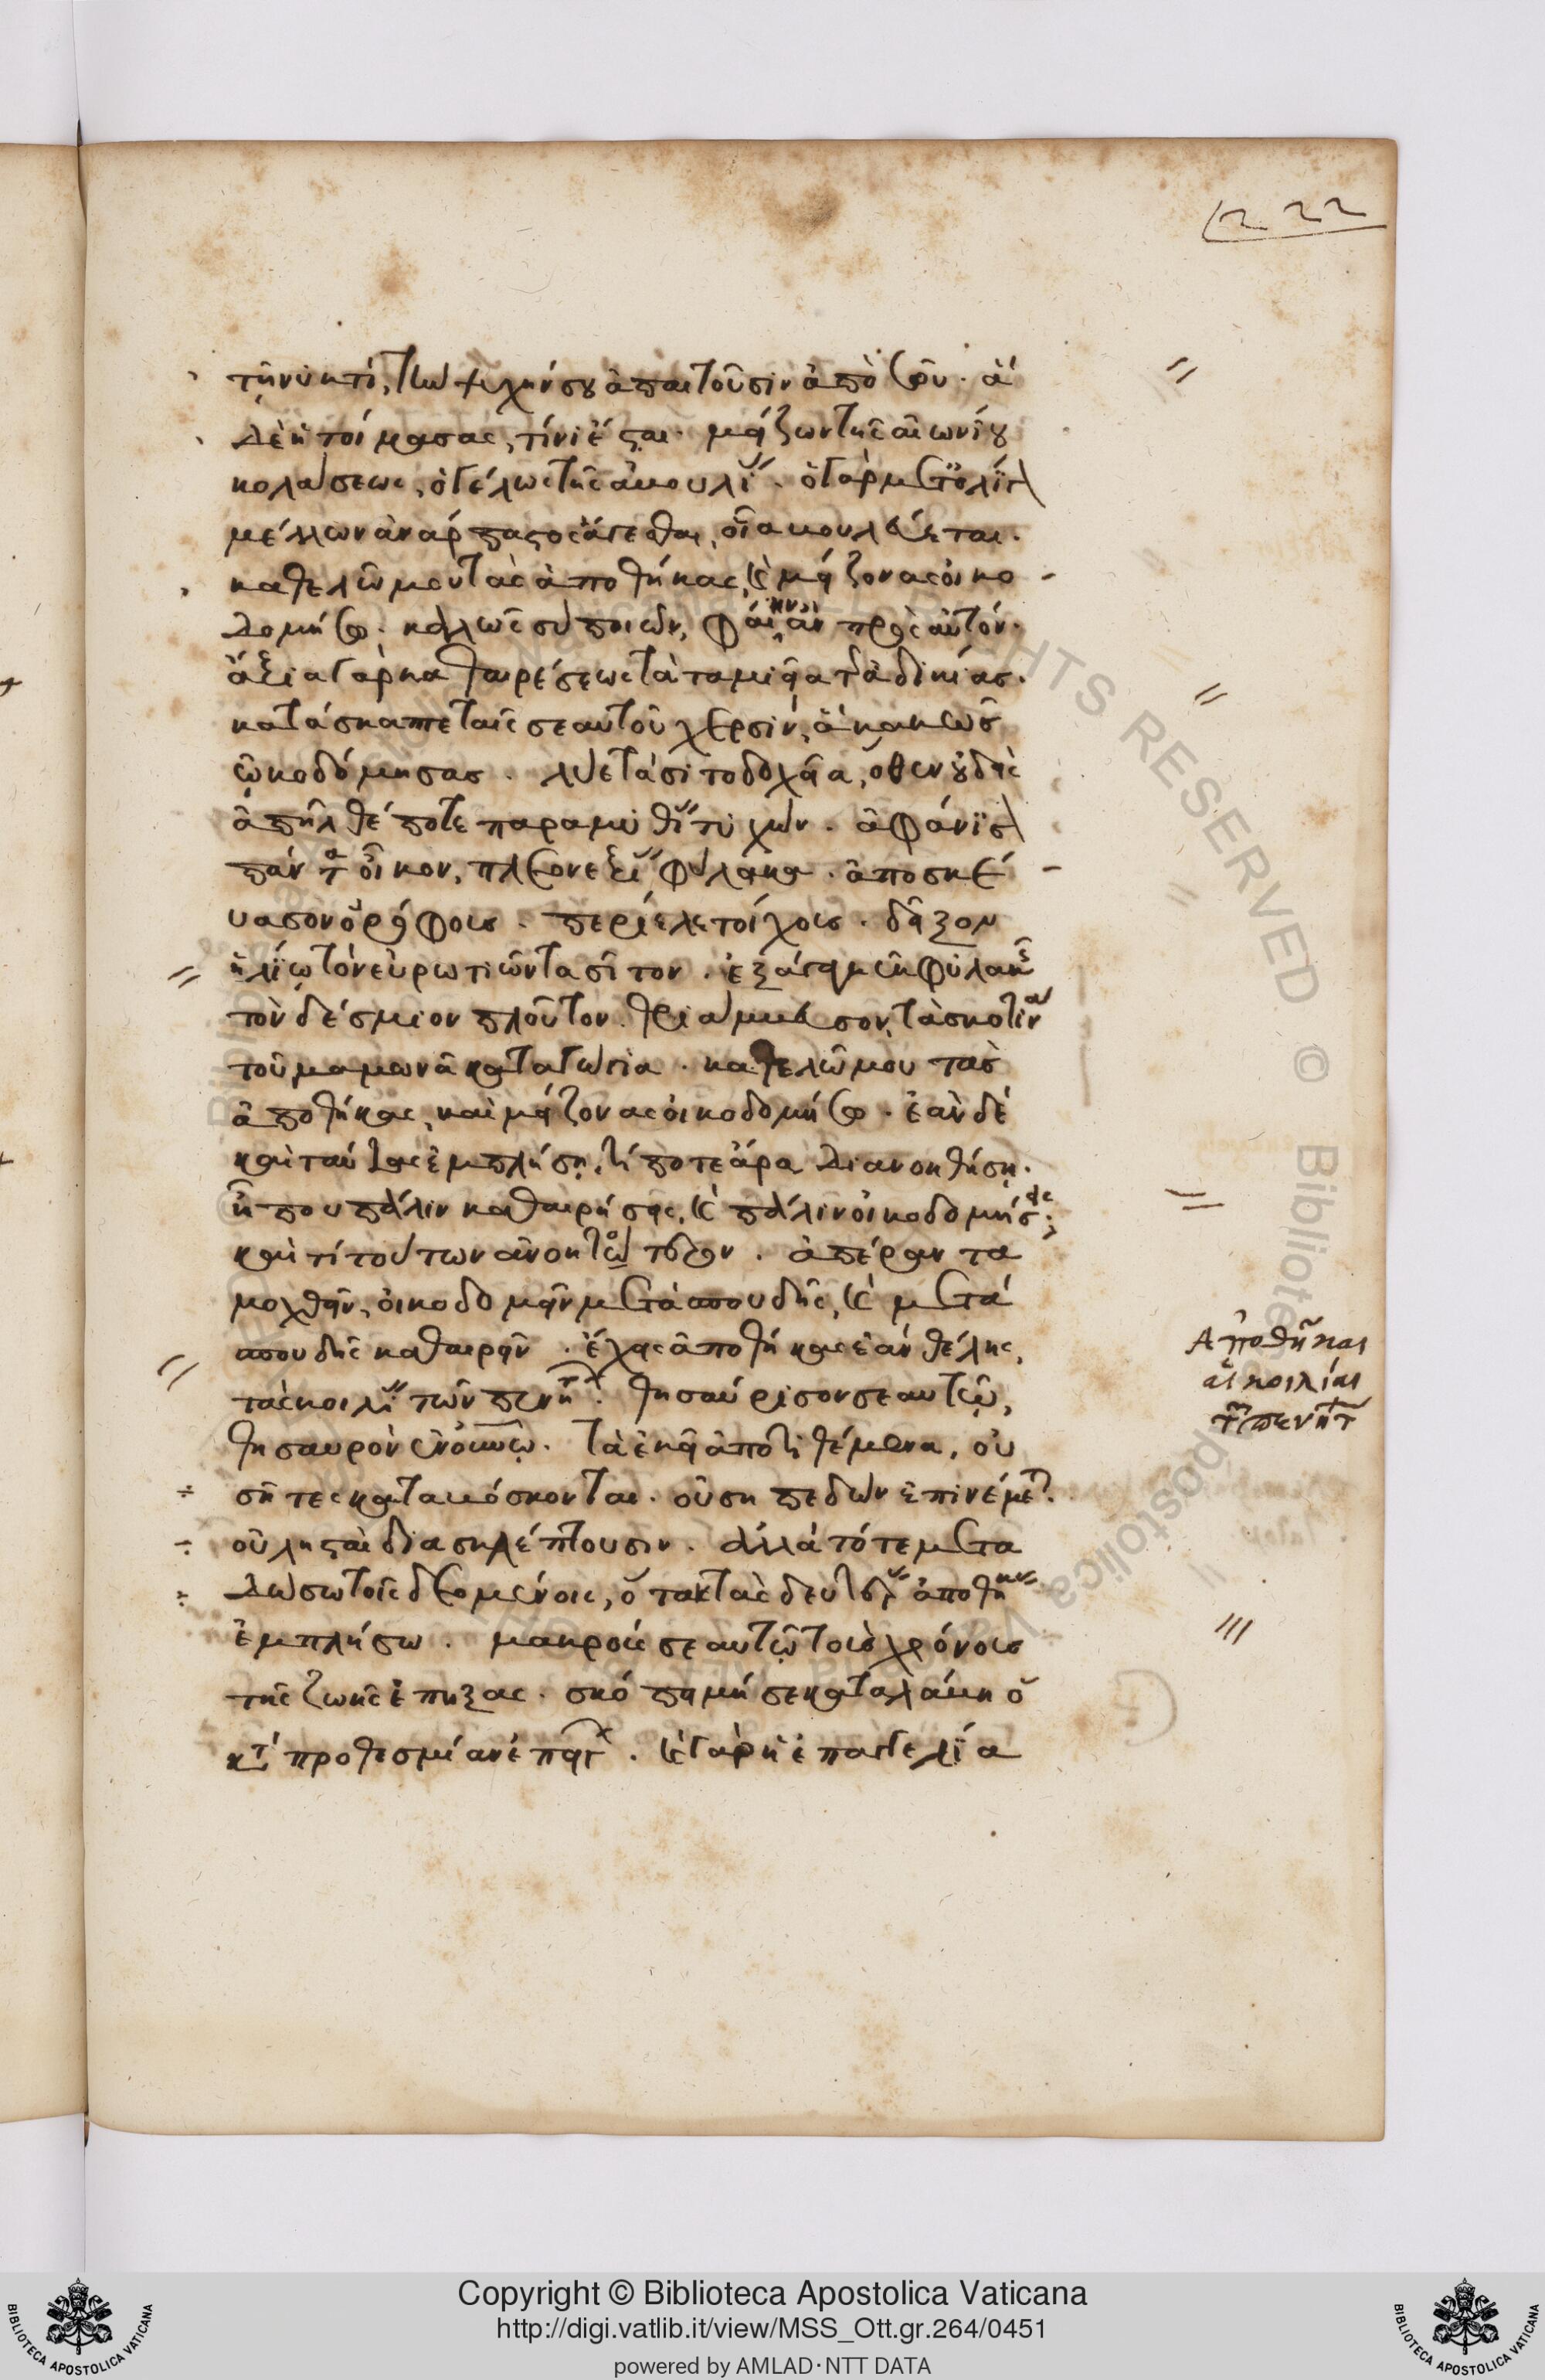 222
τῇ νυκτί, τὴν ψυχήν σου ἀπαιτοῦσιν ἀπὸ σοῦ. ἃ
δὲ ἡτοίμασας, τίνι ἔσται. μείζων τῆς αἰωνίου
κολάσεως, ὁ γέλως τῆς ἀβουλί. ὁ γὰρ μετ' ὀλίγ
μέλλων ἀνάρπαστος ἄγεσθαι, οἷα βουλεύεται.
καθελῶ μου τὰς ἀποθήκας, καὶ μείζονας οἰκο
δομήσω. καλῶς σὺ ποιῶν, φαίην ἂν πρὸς αὐτόν.
ἄξια γὰρ καθαιρέσεως τὰ ταμιεῖα τῆς ἀδικίας.
κατάσκαπτε ταῖς σεαυτοῦ χερσίν, ἃ κακῶς
ᾠκοδόμησας. λῦε τὰ σιτοδοχεῖα, ὅθεν οὐδεὶς
ἀπῆλθέ ποτε παραμυθί τυχών. ἀφάνισ
πάντα οἶκον, πλεονεξί φύλακα. ἀποσκέ
υασον ὀρόφους. περίελε τοίχους. δεῖξον
ἡλίῳ τὸν εὐρωτιῶντα σῖτον. ἐξάγαγε ἐκ φυλακῆς
τὸν δέσμιον πλοῦτον. θριάμβευσον, τὰ σκοτεινὰ
τοῦ μαμωνᾶ καταγώγια. καθελῶ μου τὰς
ἀποθήκας, καὶ μείζονας οἰκοδομήσω. ἐὰν δὲ
καὶ ταύτας ἐμπλήσῃ, τί ποτε ἄρα διανοηθήσῃ.
ἦ που πάλιν καθαιρήσεις, καὶ πάλιν οἰκοδομήσεις;
καὶ τί τούτων ἀνοητότερον. ἀπέραντα
μοχθεῖν, οἰκοδομεῖν μετὰ σπουδῆς, καὶ μετὰ
σπουδῆς καθαιρεῖν. ἔχεις ἀποθήκας ἐὰν θέλῃς,
τὰς κοιλί τῶν πενήτ. θησαύρισον σεαυτῷ,
θησαυρὸν ἐν οὐνῷ. τὰ ἐκεῖ ἀποτιθέμενα, οὐ
σῆτες καταβόσκονται. οὐ σηπεδὼν ἐπινέμετ.
οὐ λῃσταὶ διασκλέπτουσιν. ἀλλὰ τότε μετα
δώσω τοῖς δεομένοις, ὅταν τὰς δευτέρ ἀποθήκας
ἐμπλήσω. μακροὺς σεαυτῷ τοὺς χρόνους
τῆς ζωῆς ἔπηξας. σκόπει μή σε καταλάβῃ ὁ
κατὰ προθεσμίαν ἐπείγ. καὶ γὰρ ἡ ἐπαγγελία
Ἀποθῆκαι
αἱ κοιλίαι
τῶν πενήτ
Copyright © Biblioteca Apostolica Vaticana
http://digi.vatlib.it/view/MSS_Ott.gr.264/0451
powered by AMLAD·NTT DATA
BIBLIOTECA APOSTOLICA VATICANA
BIBLIOTECA APOSTOLICA VATICANA